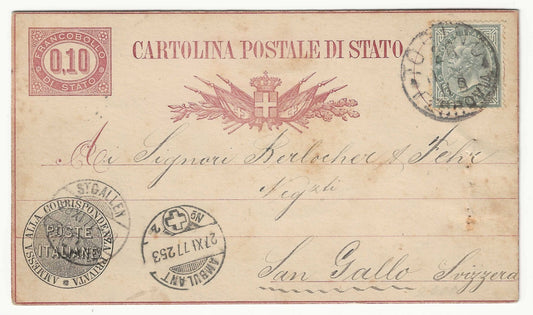 FRANCOBOLLO
0.10
DI STATO
CARTOLINA POSTALE DI STATO
Ai Signori Kerlocher & Fehr
Negzti
San Gallo Svizzera
AMMESSA ALLA CORRISPONDENZA PRIVATA
POSTE
ITALIANE
ST GALLEN
XI
No 2
27 XI 77 253
AMBULANT